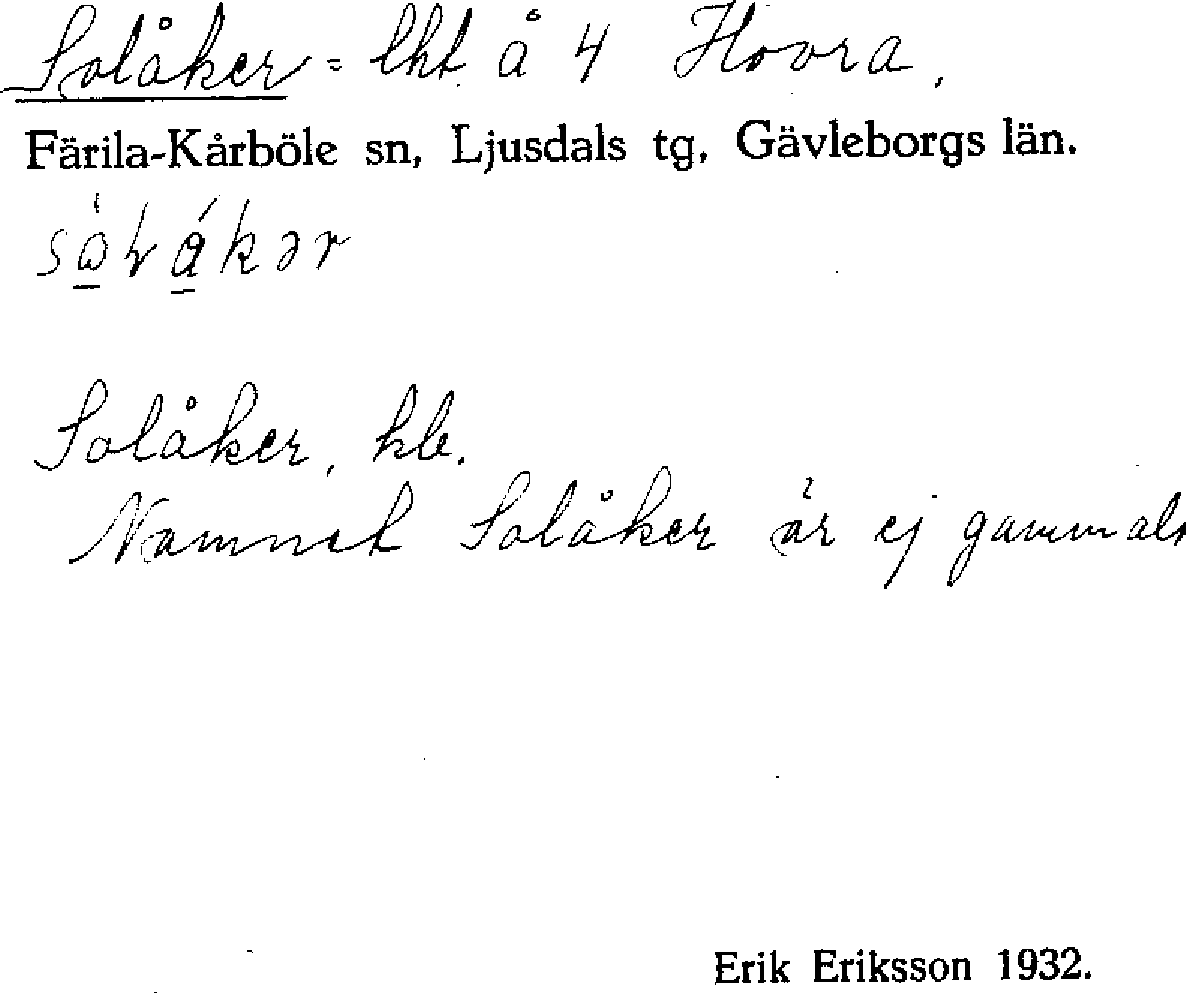 Solåker = lht. å 4 Hovra.
Färila-Kårböle sn, Ljusdals tg, Gävleborgs län.
Solåker, kb.
Namnet Solåker är ej gammalt
Erik Eriksson 1932.